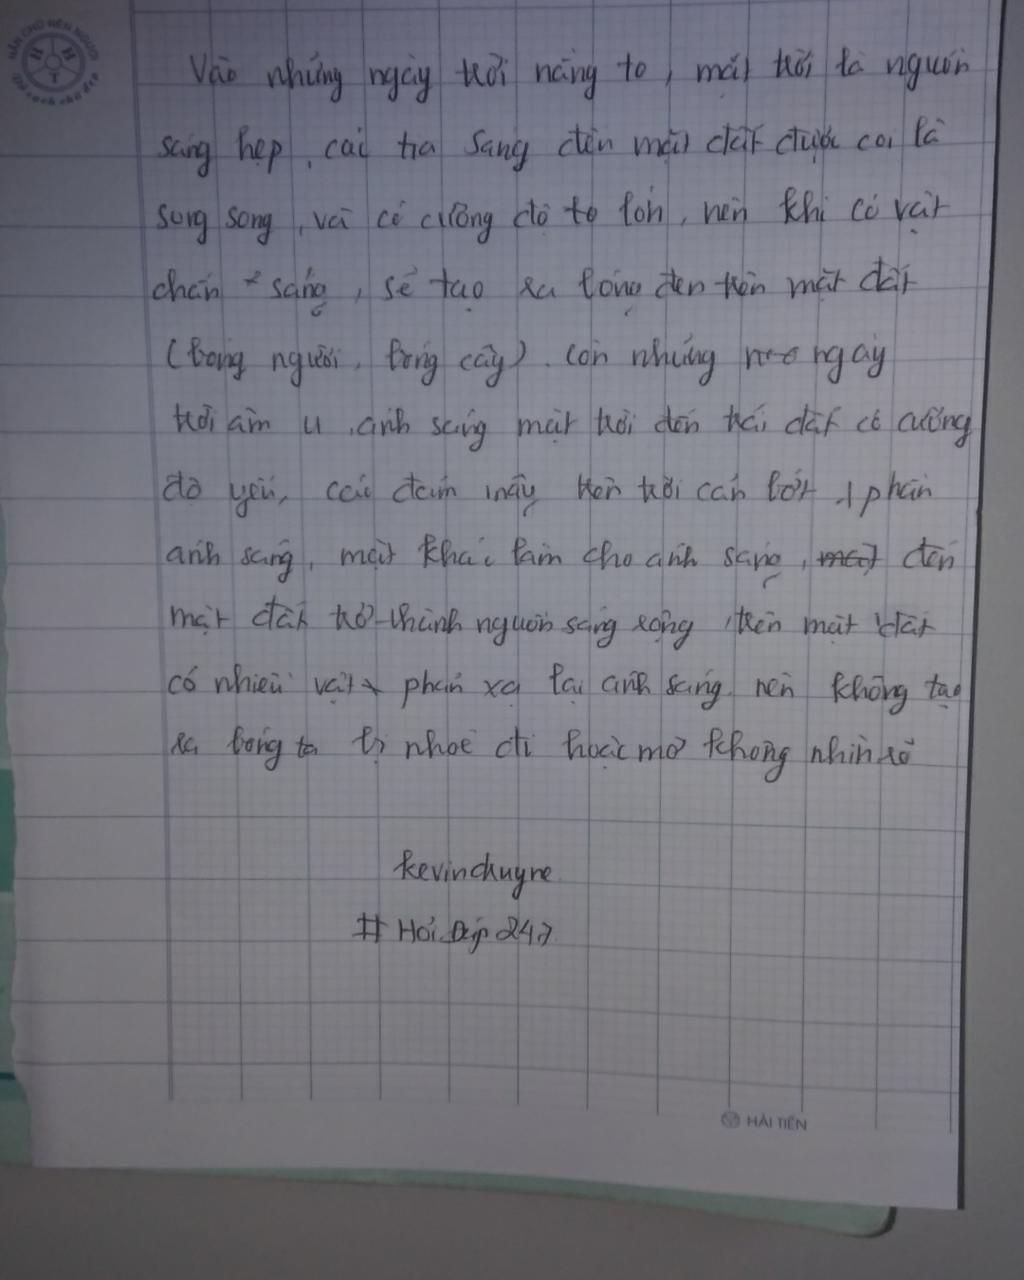 Vào những ngày trời nắng to, mặt trời là nguồn
sáng hẹp, các tia sáng đến mặt đất được coi là
song song, và có cường độ to lớn, nên khi có vật
chắn sáng, sẽ tạo ra bóng đen trên mặt đất
(bóng người, bóng cây). Còn những ngày
trời âm u, ánh sáng mặt trời đến trái đất có cường
độ yếu, các đám mây trên trời cản bớt 1 phần
ánh sáng, mặt khác làm cho ánh sáng, đến
mặt đất trở thành nguồn sáng rộng, trên mặt đất
có nhiều vật phản xạ lại ánh sáng nên không tạo
ra bóng bị nhoè đi hoặc mờ không nhìn rõ
kevinchuyre
# Hỏi đáp 247
HẢI TIẾN